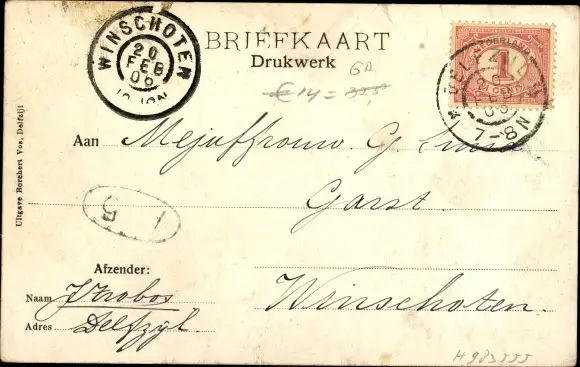 WINSCHOTEN
20
FEB
06
BRIEFKAART
Drukwerk
GR
€ 14 =
NEDERLAND
1
CENT
DELFZIJL
7-8 N
Aan Mejuffrouw G.
Garst
Winschoten.
Uitgave Borchert Vos, Delfzijl
Afzender:
Naam
Adres Delfzyl
H983555